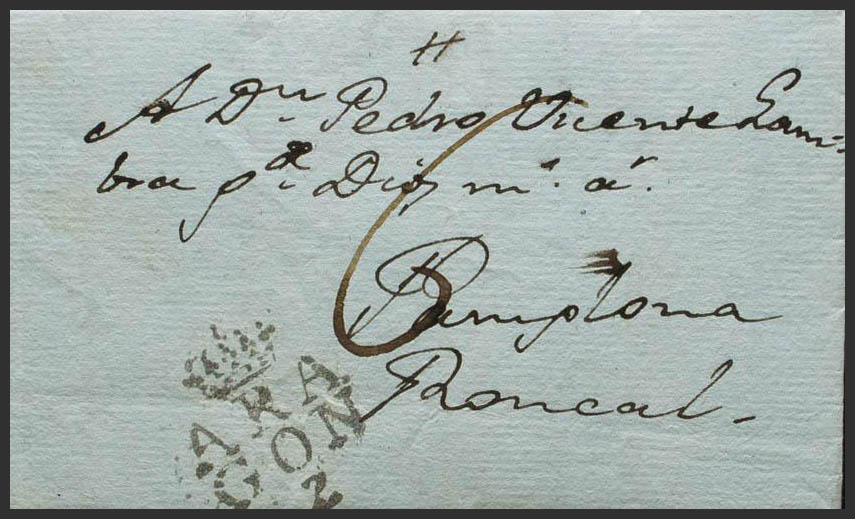 A Dn Pedro Vicente Gam=
bra gde Dios ms. as.
Pamplona
Roncal.
6
ARA
GON
2